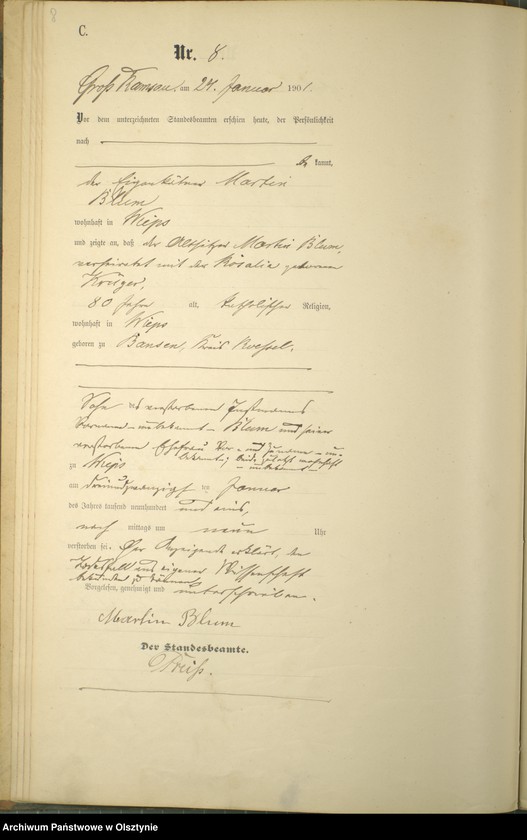 8
C.
Nr. 8.
Groß Ramsau, am 24. Januar 1901.
Vor dem unterzeichneten Standesbeamten erschien heute, der Persönlichkeit
nach
be kannt,
der Eigenkäthner Martin
Blum
wohnhaft in Wieps
und zeigte an, daß der Altsitzer Martin Blum,
verheiratet mit der Rosalie geborenen
Krüger,
80 Jahr alt, katholischer Religion,
wohnhaft in Wieps
geboren zu Bansen, Kreis Roessel.
Sohn des verstorbenen Instmanns
Vorname - unbekannt - Blum und seiner
verstorbenen Ehefrau Vor- und Zuname - un-
bekannt, beide zuletzt wohnhaft
- unbekannt -
zu Wieps
am dreiundzwanzigsten Januar
des Jahres tausend neunhundert und eins,
nach mittags um neun Uhr
verstorben sei. Der Anzeigende erklärt, den
Todesfall aus eigener Wissenschaft
bekunden zu können.
Vorgelesen, genehmigt und unterschrieben.
Martin Blum
Der Standesbeamte.
Preiß.
Archiwum Państwowe w Olsztynie